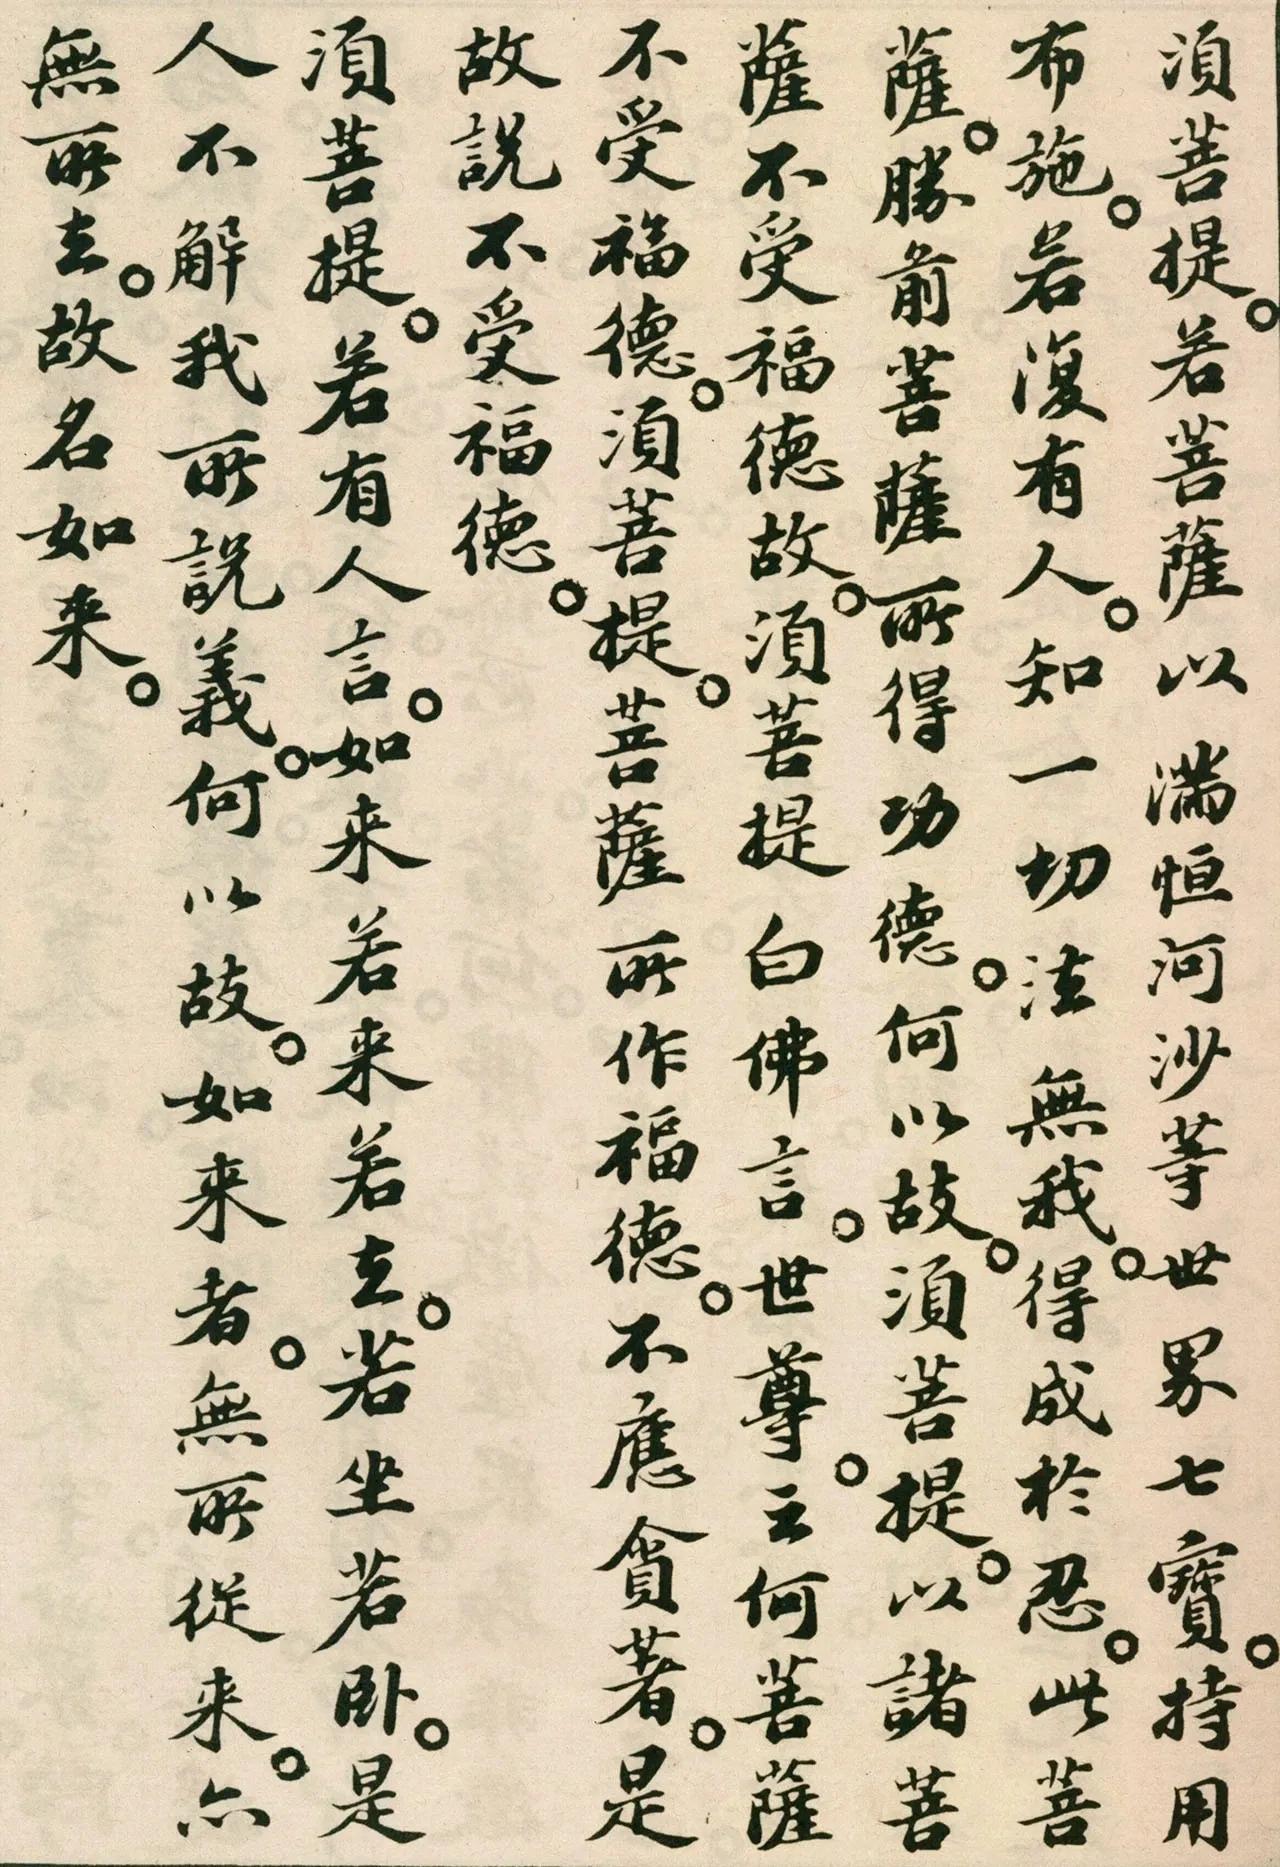 須菩提。若菩薩以滿恒河沙等世界七寶。持用
布施。若復有人。知一切法無我。得成於忍。此菩
薩。勝前菩薩所得功德。何以故。須菩提。以諸菩
薩不受福德故。須菩提白佛言。世尊。云何菩薩
不受福德。須菩提。菩薩所作福德。不應貪著。是
故説不受福德。
須菩提。若有人言。如来若来若去。若坐若卧。是
人不解我所説義。何以故。如来者。無所従来。亦
無所去。故名如来。